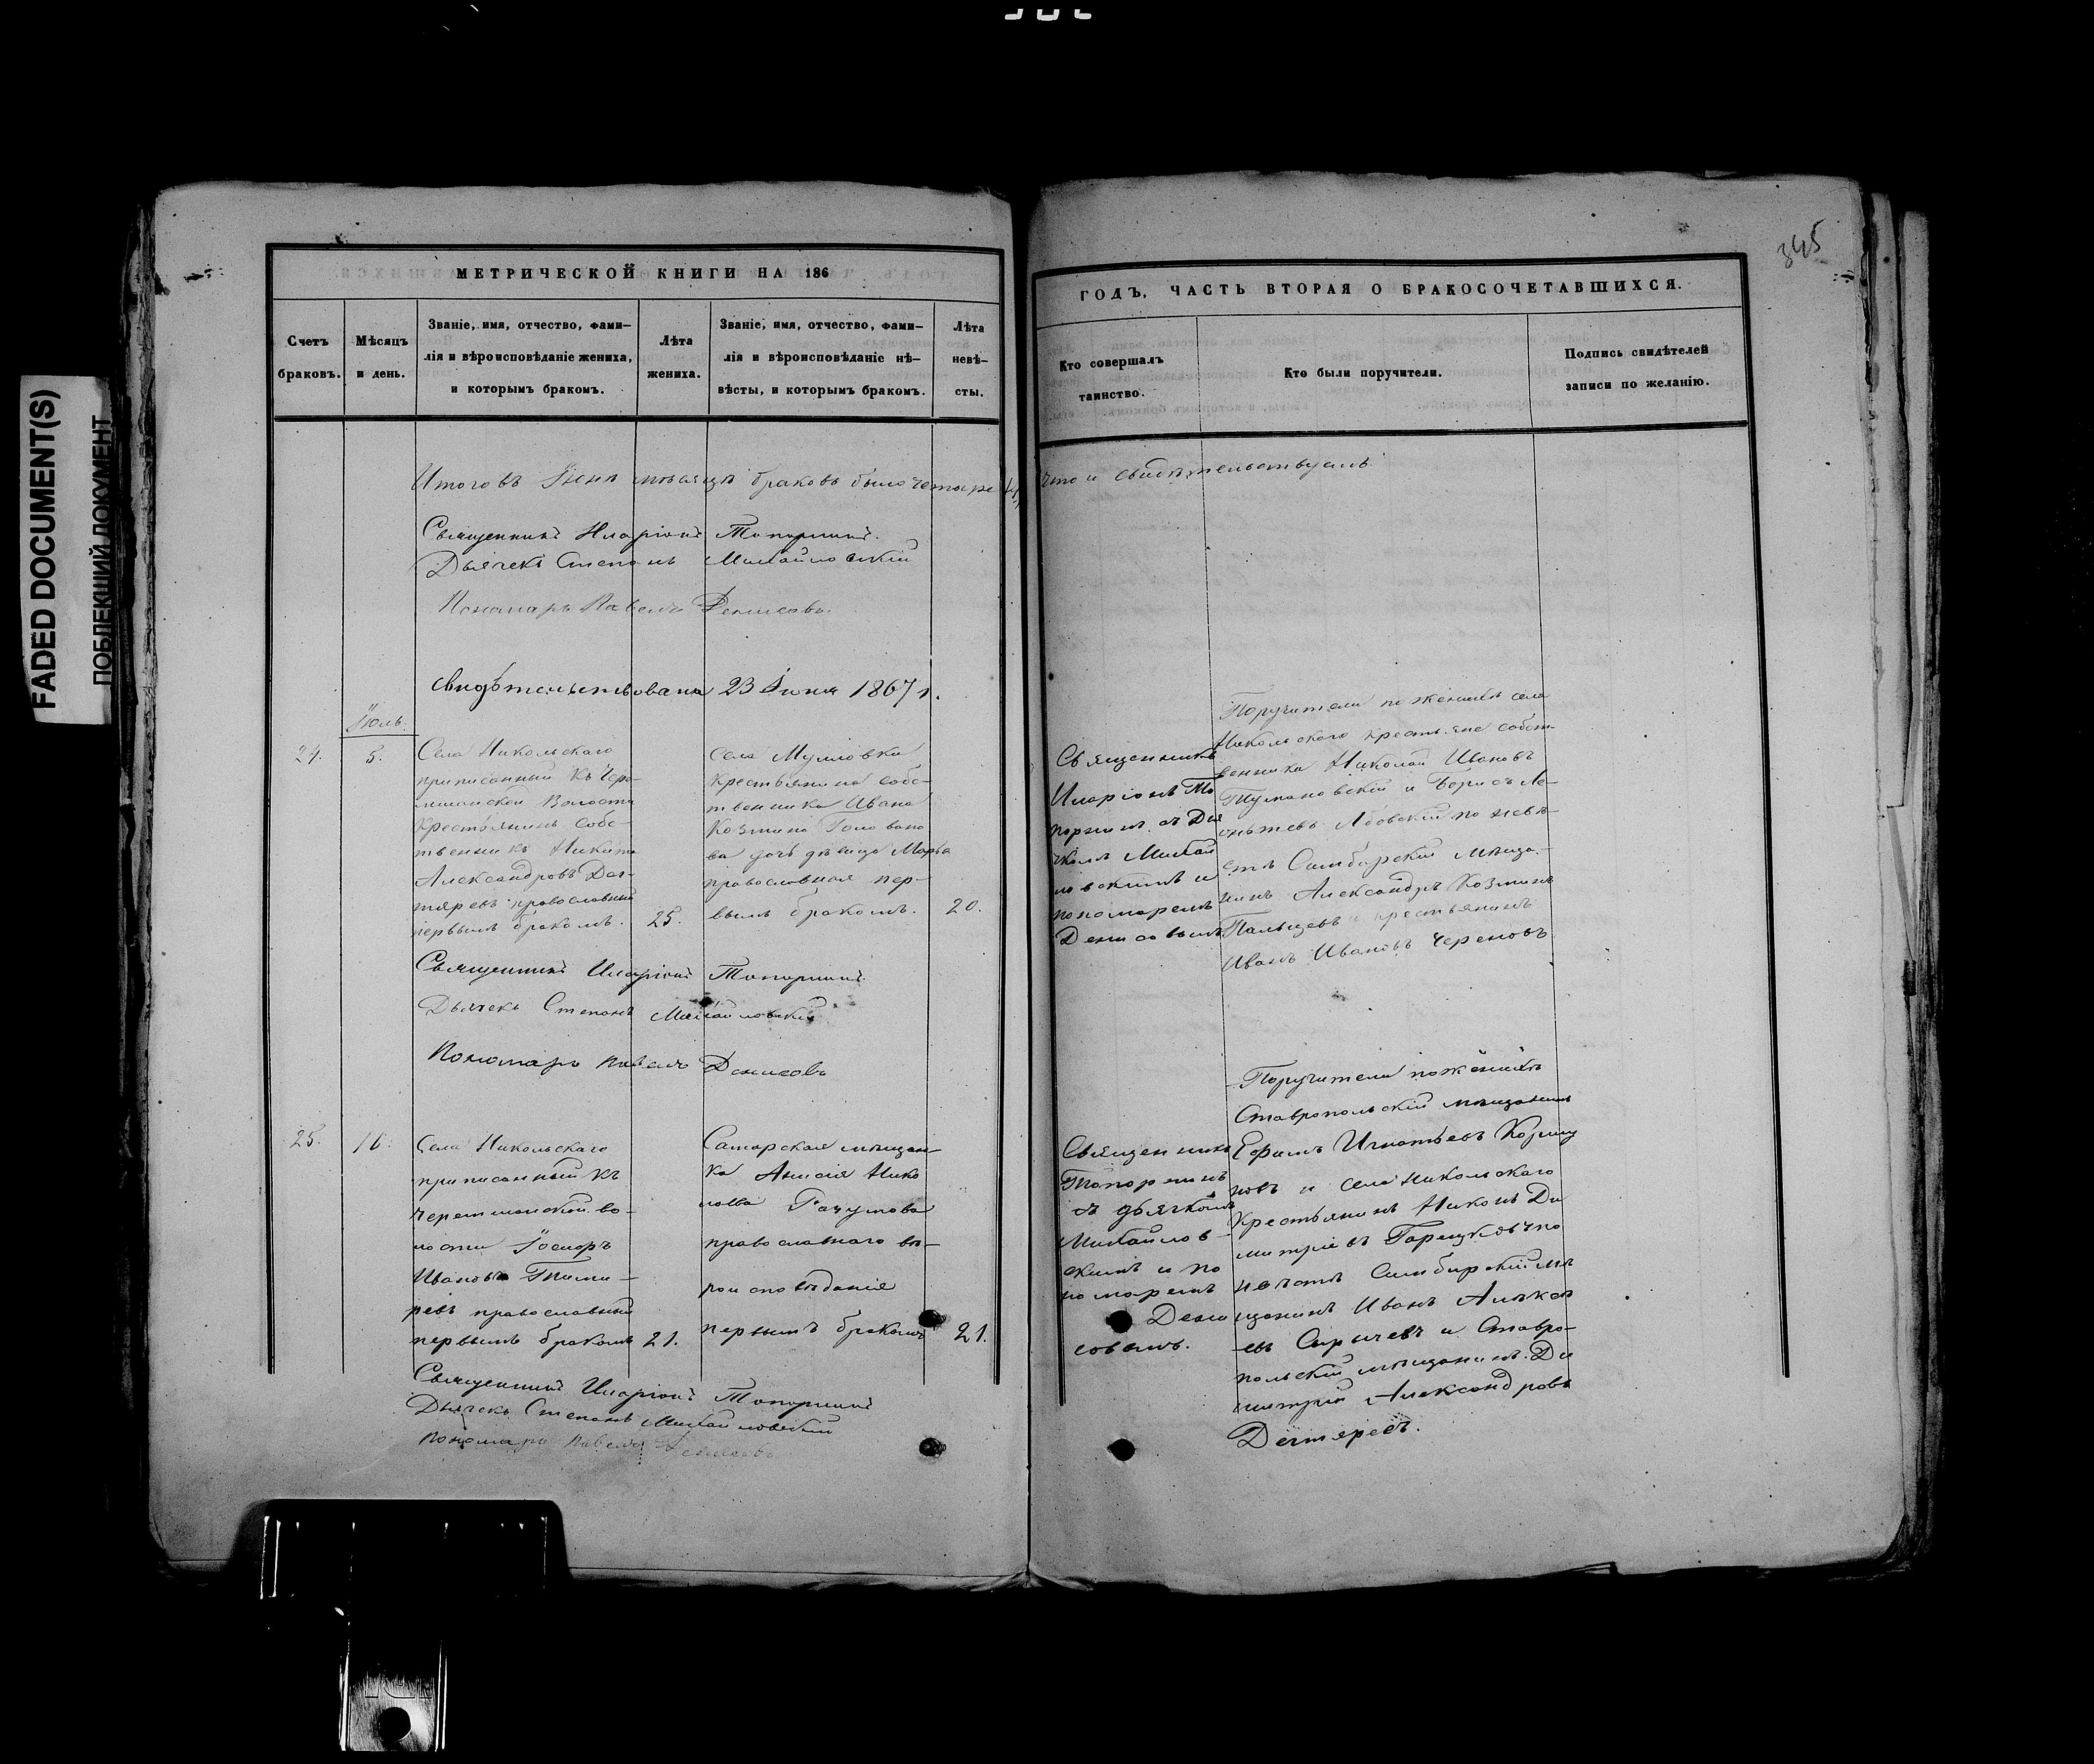 FADED DOCUMENT(S)
ПОБЛЕКШИЙ ДОКУМЕНТ
345
МЕТРИЧЕСКОЙ КНИГИ НА 186
Счетъ браковъ.
Мѣсяцъ и день.
Званіе, имя, отчество, фами-
лія и вѣроисповѣданіе жениха,
и которымъ бракомъ.
Лѣта жениха.
Званіе, имя, отчество, фами-
лія и вѣроисповѣданіе не-
вѣсты, и которымъ бракомъ.
Лѣта невѣ-
сты.
Итого въ Іюнѣ мѣсяцѣ браковъ было четыре
Священникъ Иларіонъ Топорнинъ.
Дьячекъ Степанъ Михайловскій
Пономарь Павелъ Денисовъ.
Свидѣтельствована 23 Іюня 1867 г.
Іюль.
24.
5.
Села Никольскаго
приписанный къ Чере-
мшанской Волости
Крестьянинъ собс-
твенникъ Никита
Александровъ Дег-
тяревъ православный
первымъ бракомъ.
25.
Села Мулловки
Крестьянина собс-
твенника Ивана
Козмина Голована
ва дочь дѣвица Марья
православная пер-
вымъ бракомъ.
20.
Священникъ Иларіонъ Топорнинъ.
Дьячекъ Степанъ Михайловскій
Пономарь Павелъ Денисовъ
25.
16.
Села Никольскаго
приписанный къ
Черемшанской во-
лости
Ивановъ
ревъ православный
первымъ бракомъ
21.
Самарская мѣщан-
ка Анисія Нико
лаева
православнаго вѣ-
роисповѣданія
первымъ бракомъ
21.
Священникъ Иларіонъ Топорнинъ
Дьячекъ Степанъ Михайловскій
Пономарь Павелъ Денисовъ
ГОДЪ, ЧАСТЬ ВТОРАЯ О БРАКОСОЧЕТАВШИХСЯ.
Кто совершалъ
таинство.
Кто были поручители.
Подпись свидѣтелей
записи по желанію.
что и свидѣтельствуемъ
Священникъ
Иларіонъ То
порнинъ съ Дья
чкомъ Михай
ловскимъ и
пономаремъ
Денисовымъ
Поручители по женихѣ села
Никольскаго крестьяне собст-
венники Николай Ивановъ
Тумановскій и Борисъ Ле-
онтьевъ по невѣ-
стѣ Симбирскій мѣща-
нинъ Александръ Козминъ
Пальцевъ и крестьянинъ
Иванъ Ивановъ Череновъ
Священникъ
Топорнинъ
съ дьячкомъ
Михайлов-
скимъ и по
номаремъ
Дени
совымъ.
Поручители по женихѣ
Ставропольскій мѣщанинъ
Ефимъ Игнатьевъ
и села Никольскаго
Крестьянинъ Никонъ Ди
митріевъ по
невѣстѣ Симбирскій мѣ
щанинъ Иванъ Алексѣ
евъ и Ставро-
польскій мѣщанинъ Ди
митрій Александровъ
Дегтяревъ.